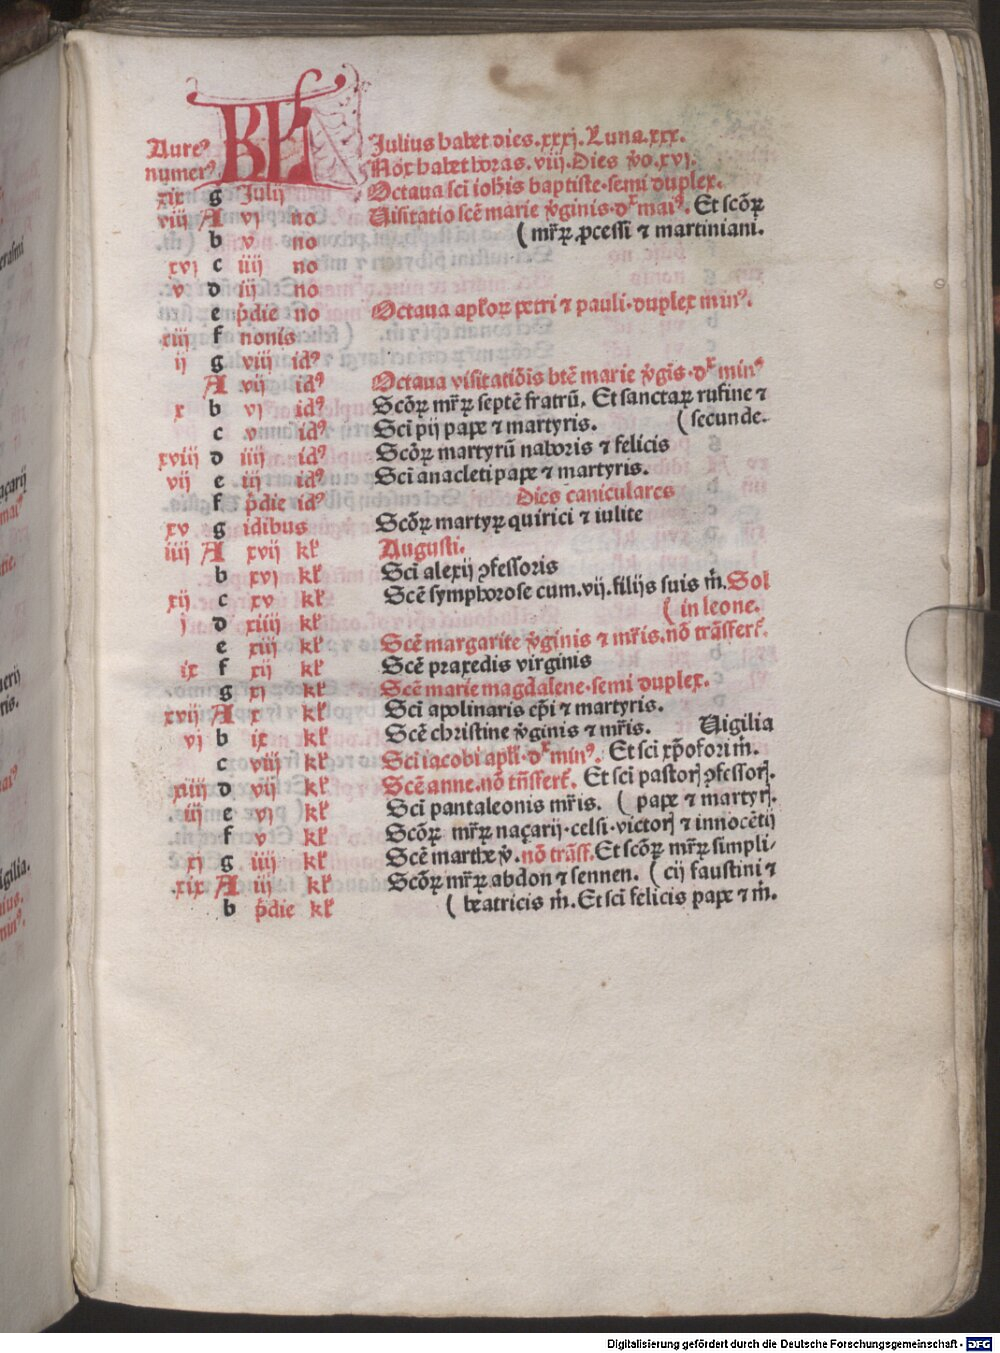 KL
Aureꝰ Julius habet dies .xxxj. Luna .xxx.
numerꝰ Nox habet horas .viij. Dies v̊o .xvj.
xix g Julij Octaua sci̅ ioh̅is baptiste · semi duplex.
viij A vj no Uisitatio sce̅ marie v̊ginis · dx̅ maiꝰ. Et sco̅ꝝ
b v no ( mr̅ꝝ ꝓcessi ⁊ martiniani.
xvj c iiij no
v d iij no
e p̊die no Octaua aplo̅ꝝ petri ⁊ pauli · duplex minꝰ.
xiij f nonis
ij g viij idꝰ
A vij idꝰ Octaua visitatio̅is bte̅ marie v̊gis · dx̅ minꝰ
x b vj idꝰ Sco̅ꝝ mr̅ꝝ septe̅ fratru̅. Et sanctaꝝ rufine ⁊
c v idꝰ Sci̅ pij pape ⁊ martyris. ( secunde.
xviij d iiij idꝰ Sco̅ꝝ martyru̅ naboris ⁊ felicis
vij e iij idꝰ Sci̅ anacleti pape ⁊ martyris.
f p̊die idꝰ Dies caniculares
xv g idibus Sco̅ꝝ martyꝝ quirici ⁊ iulite
iiij A xvij kl̅ Augusti.
b xvj kl̅ Sci̅ alexij ꝯfessoris
xij c xv kl̅ Sce̅ symphorose cum .vij. filijs suis m̅. Sol
j d xiiij kl̅ ( in leone.
e xiij kl̅ Sce̅ margarite v̊ginis ⁊ mr̅is. no̅ tra̅sfert̅.
ix f xij kl̅ Sce̅ praxedis virginis
g xj kl̅ Sce̅ marie magdalene · semi duplex.
xvij A x kl̅ Sci̅ apolinaris ep̅i ⁊ martyris.
vj b ix kl̅ Sce̅ christine v̊ginis ⁊ mr̅is. Uigilia
c viij kl̅ Sci̅ iacobi apl̅i · dx̅ minꝰ. Et sci̅ xp̅ofori m̅.
xiiij d vij kl̅ Sce̅ anne. no̅ tn̅sfert̅. Et sci̅ pastorꝭ ꝯfessorꝭ.
iij e vj kl̅ Sci̅ pantaleonis mr̅is. ( pape ⁊ martyrꝭ.
f v kl̅ Sco̅ꝝ mr̅ꝝ naçarij · celsi · victorꝭ ⁊ innoce̅tij
xj g iiij kl̅ Sce̅ marthe v̊. no̅ tra̅sf. Et sco̅ꝝ mr̅ꝝ simpli/
xix A iij kl̅ Sco̅ꝝ mr̅ꝝ abdon ⁊ sennen. ( cij faustini ⁊
b p̊die kl̅ ( beatricis m̅. Et sci̅ felicis pape ⁊ m̅.
Digitalisierung gefördert durch die Deutsche Forschungsgemeinschaft - DFG